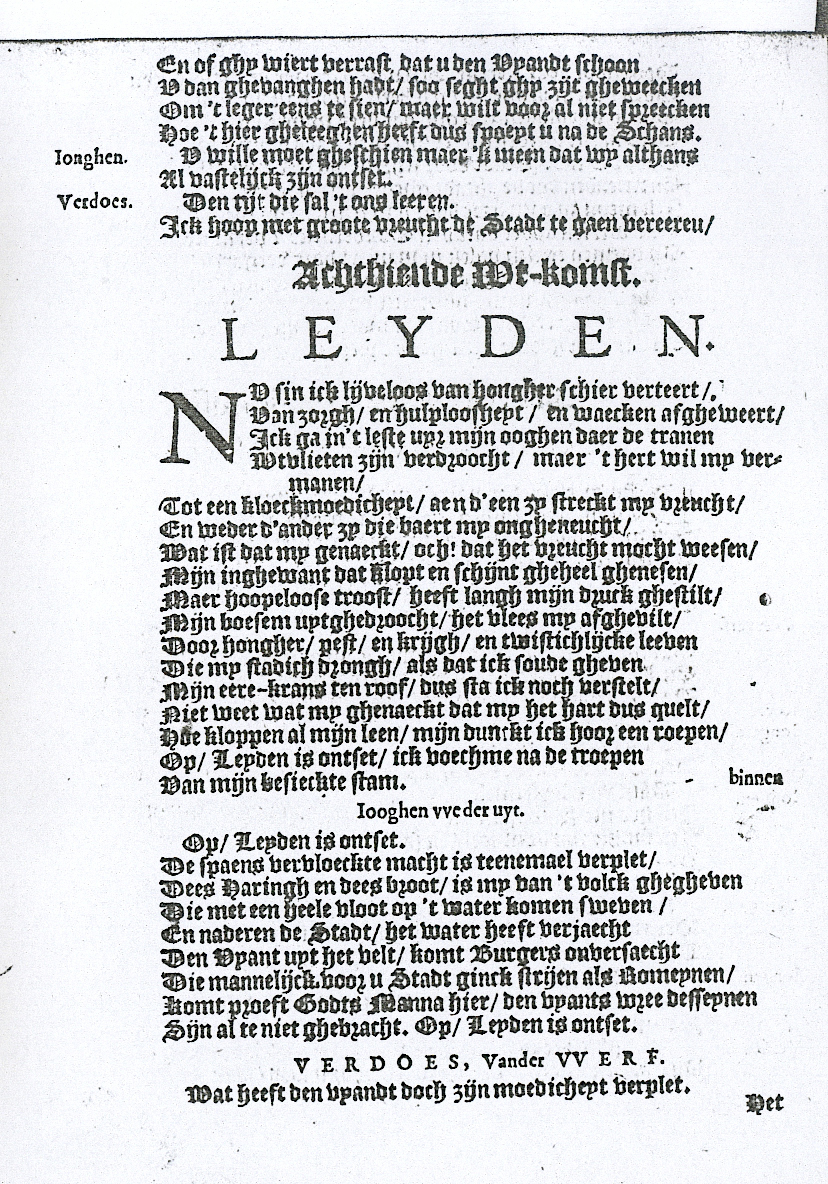 En of ghy wiert verrast dat u den Vyandt schoon
V dan ghevanghen hadt/ soo seght ghy zijt gheweecken
Om 't leger eens te sien/ maer wilt voor al niet spreecken
Hoe 't hier gheleeghen heeft dus spoeyt u na de Schans.
Ionghen. V wille moet gheschien maer 'k meen dat wy althans
Al vastelijck zijn ontset.
Verdoes. Den tijt die sal 't ons leeren.
Ick hoop met groote vreucht de Stadt te gaen vereeren/
Achthiende Wt-komst.
LEYDEN.
NV sin ick lijveloos van hongher schier verteert/
Van zorgh/ en hulploosheyt/ en waecken afgheweert/
Ick ga in 't leste uyr mijn ooghen daer de tranen
Wtvlieten zijn verdroocht/ maer 't hert wil my ver-
manen/
Tot een kloeckmoedicheyt/ aen d'een zy streckt my vreucht/
En weder d'ander zy die baert my ongheneucht/
Wat ist dat my genaeckt/ och! dat het vreucht mocht weesen/
Mijn inghewant dat klopt en schijnt gheheel ghenesen/
Maer hoopeloose troost/ heeft langh mijn druck ghestilt/
Mijn boesem uytghedroocht/ het vlees my afghevilt/
Door hongher/ pest/ en krijgh/ en twistichlijcke leeven
Die my stadich drongh/ als dat ick soude gheven
Mijn eere-krans ten roof/ dus sta ick noch verstelt/
Niet weet wat my ghenaeckt dat my het hart dus quelt/
Hoe kloppen al mijn leen/ mijn dunckt ick hoor een roepen/
Op/ Leyden is ontset/ ick voechme na de troepen
Van mijn besieckte stam. - binnen
Iooghen vveder uyt.
Op/ Leyden is ontset.
De spaens vervloeckte macht is teenemael verplet/
Dees Haringh en dees broot/ is my van 't volck ghegheven
Die met een heele vloot op 't water komen sweven/
En naderen de Stadt/ het water heeft verjaecht
Den Vyant uyt het velt/ komt Burgers onversaecht
Die mannelijck voor u Stadt ginck strijen als Romeynen/
Komt proeft Godts Manna hier/ den vyants wree desseynen
Sijn al te niet ghebracht. Op/ Leyden is ontset.
VERDOES, Vander VVERF.
Wat heeft den vyandt doch zijn moedicheyt verplet.
Het